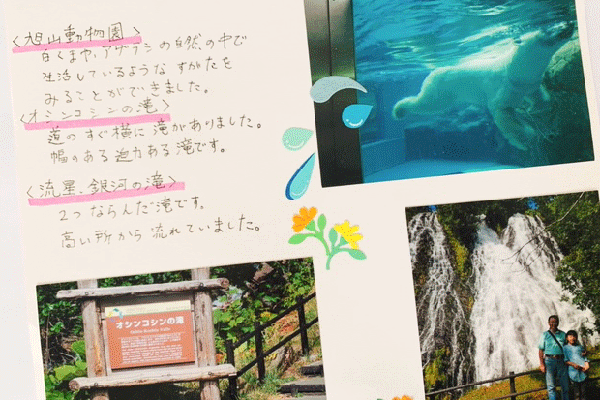 〈旭山動物園〉
白くまや、アザラシの自然の中で
生活しているような すがたを
みることができました。
〈オシンコシンの滝〉
道のすぐ横に 滝がありました。
幅のある迫力ある滝です。
〈流星、銀河の滝〉
2つ ならんだ滝です。
高い所から 流れていました。
オシンコシンの滝